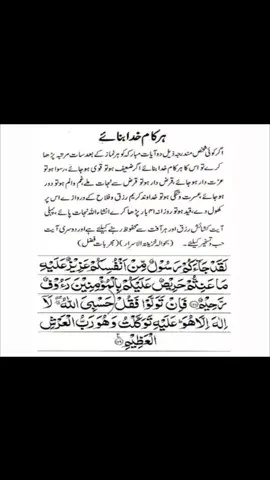 ہر کام خدا بنائے
اگر کوئی شخص مندرجہ ذیل دو آیات مبارکہ کو ہر نماز کے بعد سات مرتبہ پڑھا
کرے تو اس کا ہر کام خدا بنائے اگر ضعیف ہو تو قوی ہو جائے، رسوا ہو تو
عزت دار ہو جائے، قرض دار ہو تو قرض سے نجات ملے غم والم ہو تو دور
ہو جائے، عسرت و تنگی ہو تو خداوند کریم رزق و فلاح کے دروازے اس پر
کھول دے، قید ہو تو روزانہ ۴۱ بار پڑھا کرے انشاء اللہ نجات پائے، پہلی
آیت کشائش رزق اور ہر آفت سے محفوظ رہنے کیلئے ہے اور دوسری آیت
حب و تسخیر کیلئے۔ (بحوالہ خزینۃ الاسرار) (مجربات فضل)
لَقَدْ جَآءَكُمْ رَسُوْلٌ مِّنْ اَنْفُسِكُمْ عَزِيْزٌ عَلَيْهِ
مَا عَنِتُّمْ حَرِيْصٌ عَلَيْكُمْ بِالْمُؤْمِنِيْنَ رَءُوْفٌ
رَّحِيْمٌ فَاِنْ تَوَلَّوْا فَقُلْ حَسْبِيَ اللّٰهُ لَآ
اِلٰهَ اِلَّا هُوَ عَلَيْهِ تَوَكَّلْتُ وَهُوَ رَبُّ الْعَرْشِ
الْعَظِيْمِ